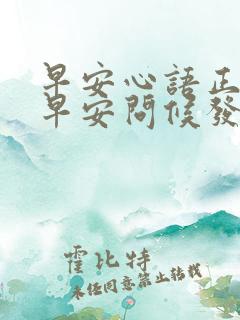 早安心語正
早安問候發
霍比特
未经同意禁止转载